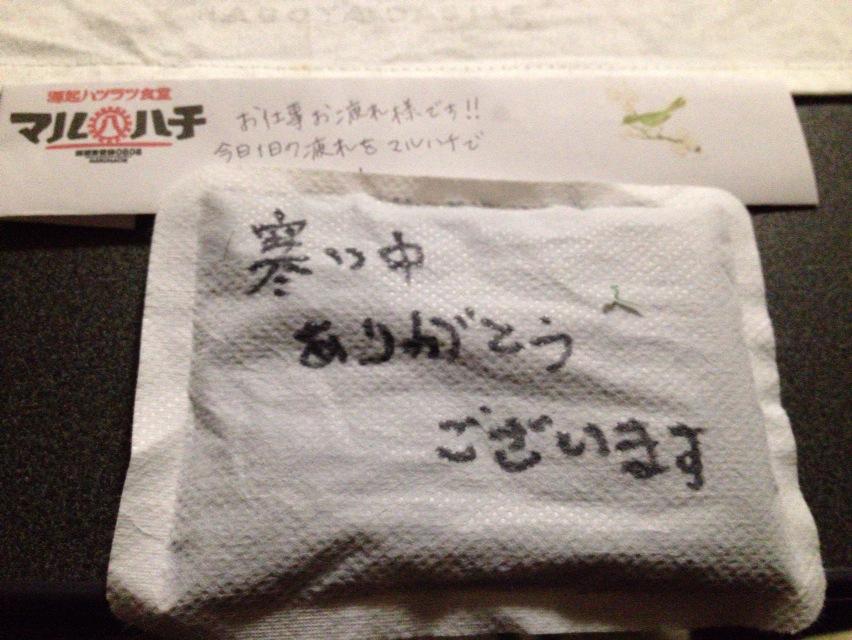 源起ハツラツ食堂
マル八ハチ
お仕事お疲れ様です!!
今日1日の疲れをマルハチで
寒い中
ありがとう
ございます